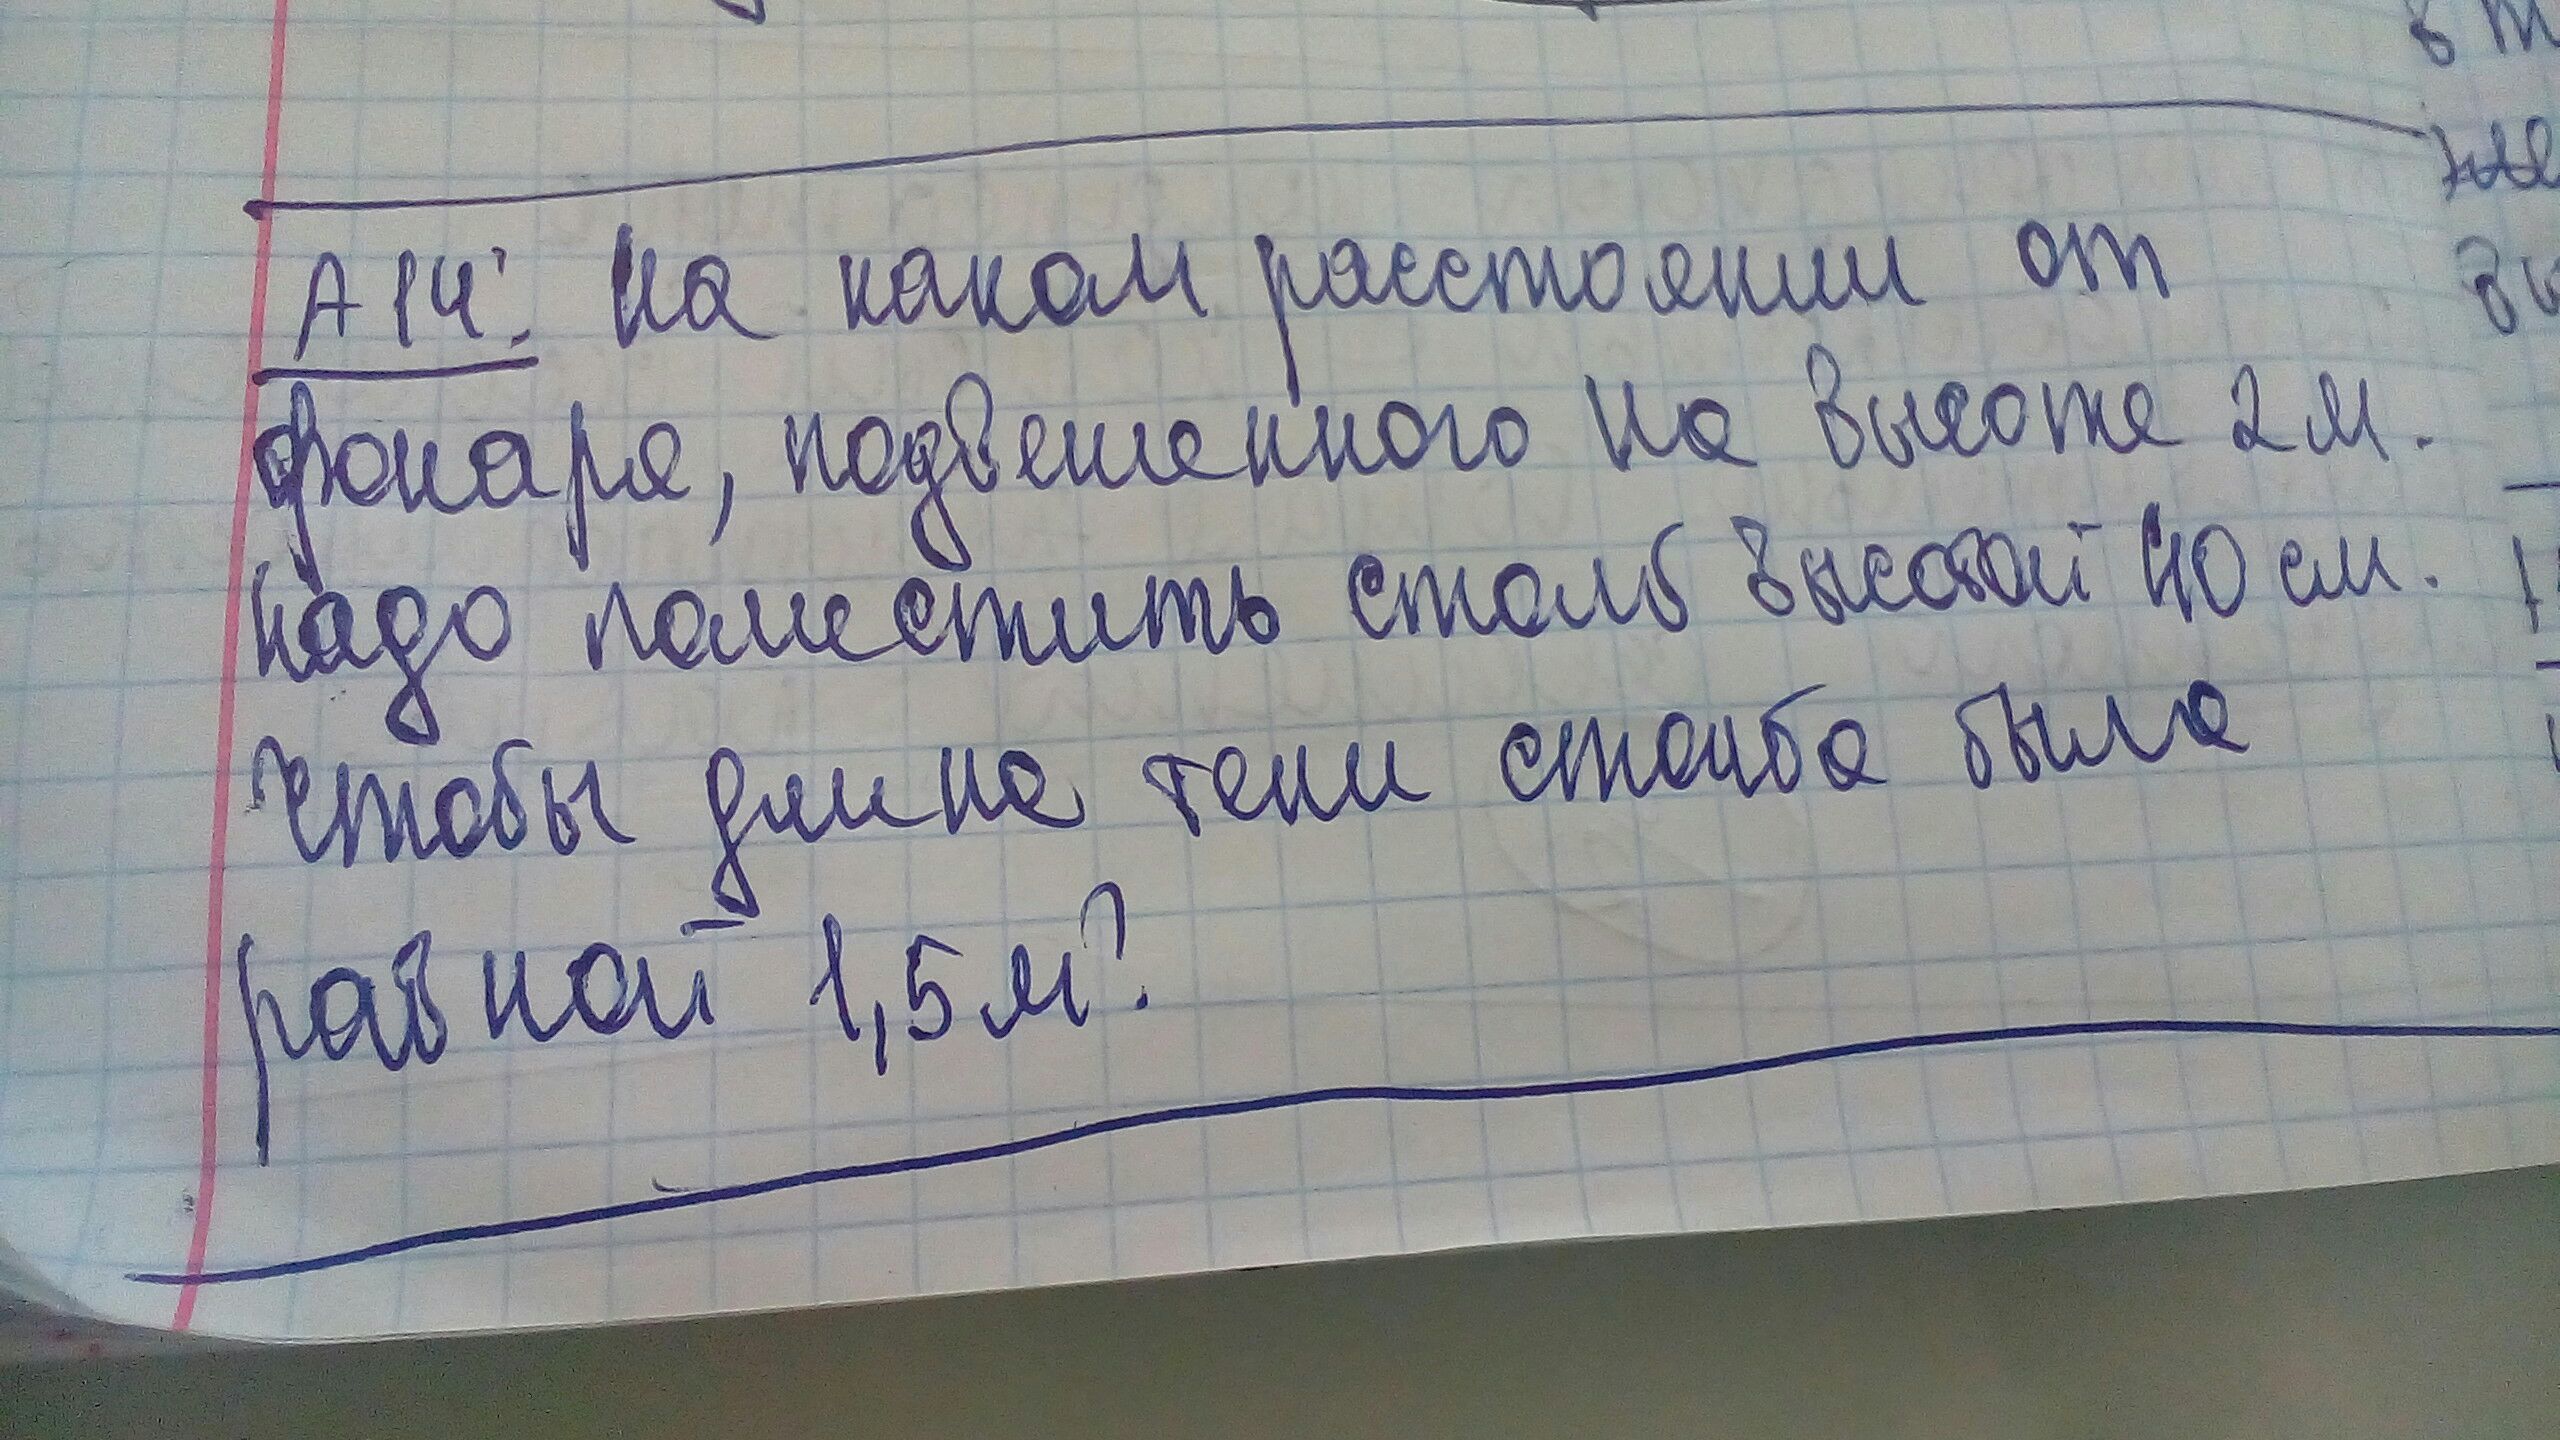 А 14. На каком расстоянии от
фонаря, подвешенного на высоте 2 м.
надо поместить столб высотой 40 см.
чтобы длина тени столба была
равной 1,5 м?